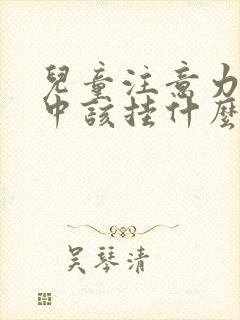 兒童注意力
中該挂什麼
吴琴清